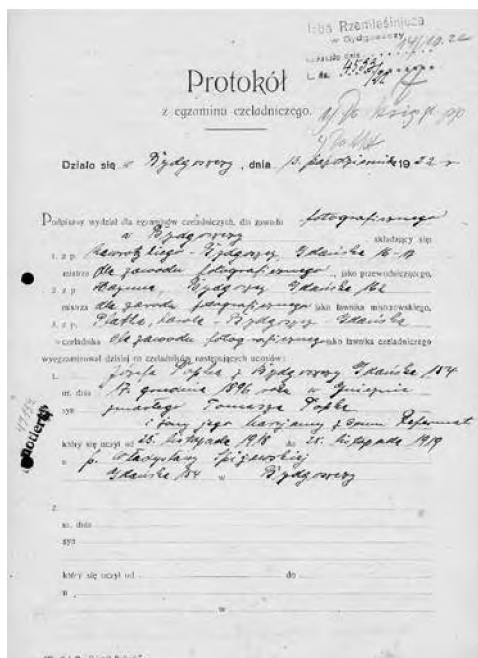 Izba Rzemieślnicza
w Bydgoszczy
14/10.22
L. dz. 4553/22
Protokół
z egzaminu czeladniczego.
Działo się w Bydgoszczy, dnia 13 październik 1922 r
Podpisany wydział dla egzaminów czeladniczych, dla zawodu fotograficznego
w Bydgoszczy składający się:
1. z p. Nawrotzkiego - Bydgoszcz, Gdańska 16-17
mistrza dla zawodu fotograficznego, jako przewodniczącego,
2. z p. Bydgoszcz, Gdańska 162
mistrza dla zawodu fotograficznego jako ławnika mistrzowskiego,
3. z p. Bydgoszcz - Gdańska
czeladnika dla zawodu fotograficznego jako ławnika czeladniczego
wyegzaminował dzisiaj na czeladników następujących uczniów:
1. Józefa z Bydgoszczy Gdańska 154
ur. dnia 17. grudnia 1896 roku w Gnieźnie
syn zmarłego Tomasza
i żony jego Marjanny z domu Reformat
który się uczył od 25. listopada 1918 do 25. listopada 1919
u p. Władysławy Spiżewskiej
Gdańska 154 w Bydgoszczy
2.
ur. dnia
syn
który się uczył od do
u
w